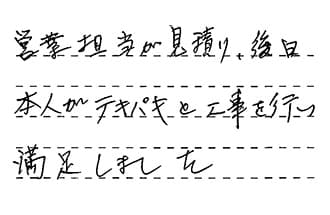 営業担当が見積り、後日
本人がテキパキと工事を行い
満足しました